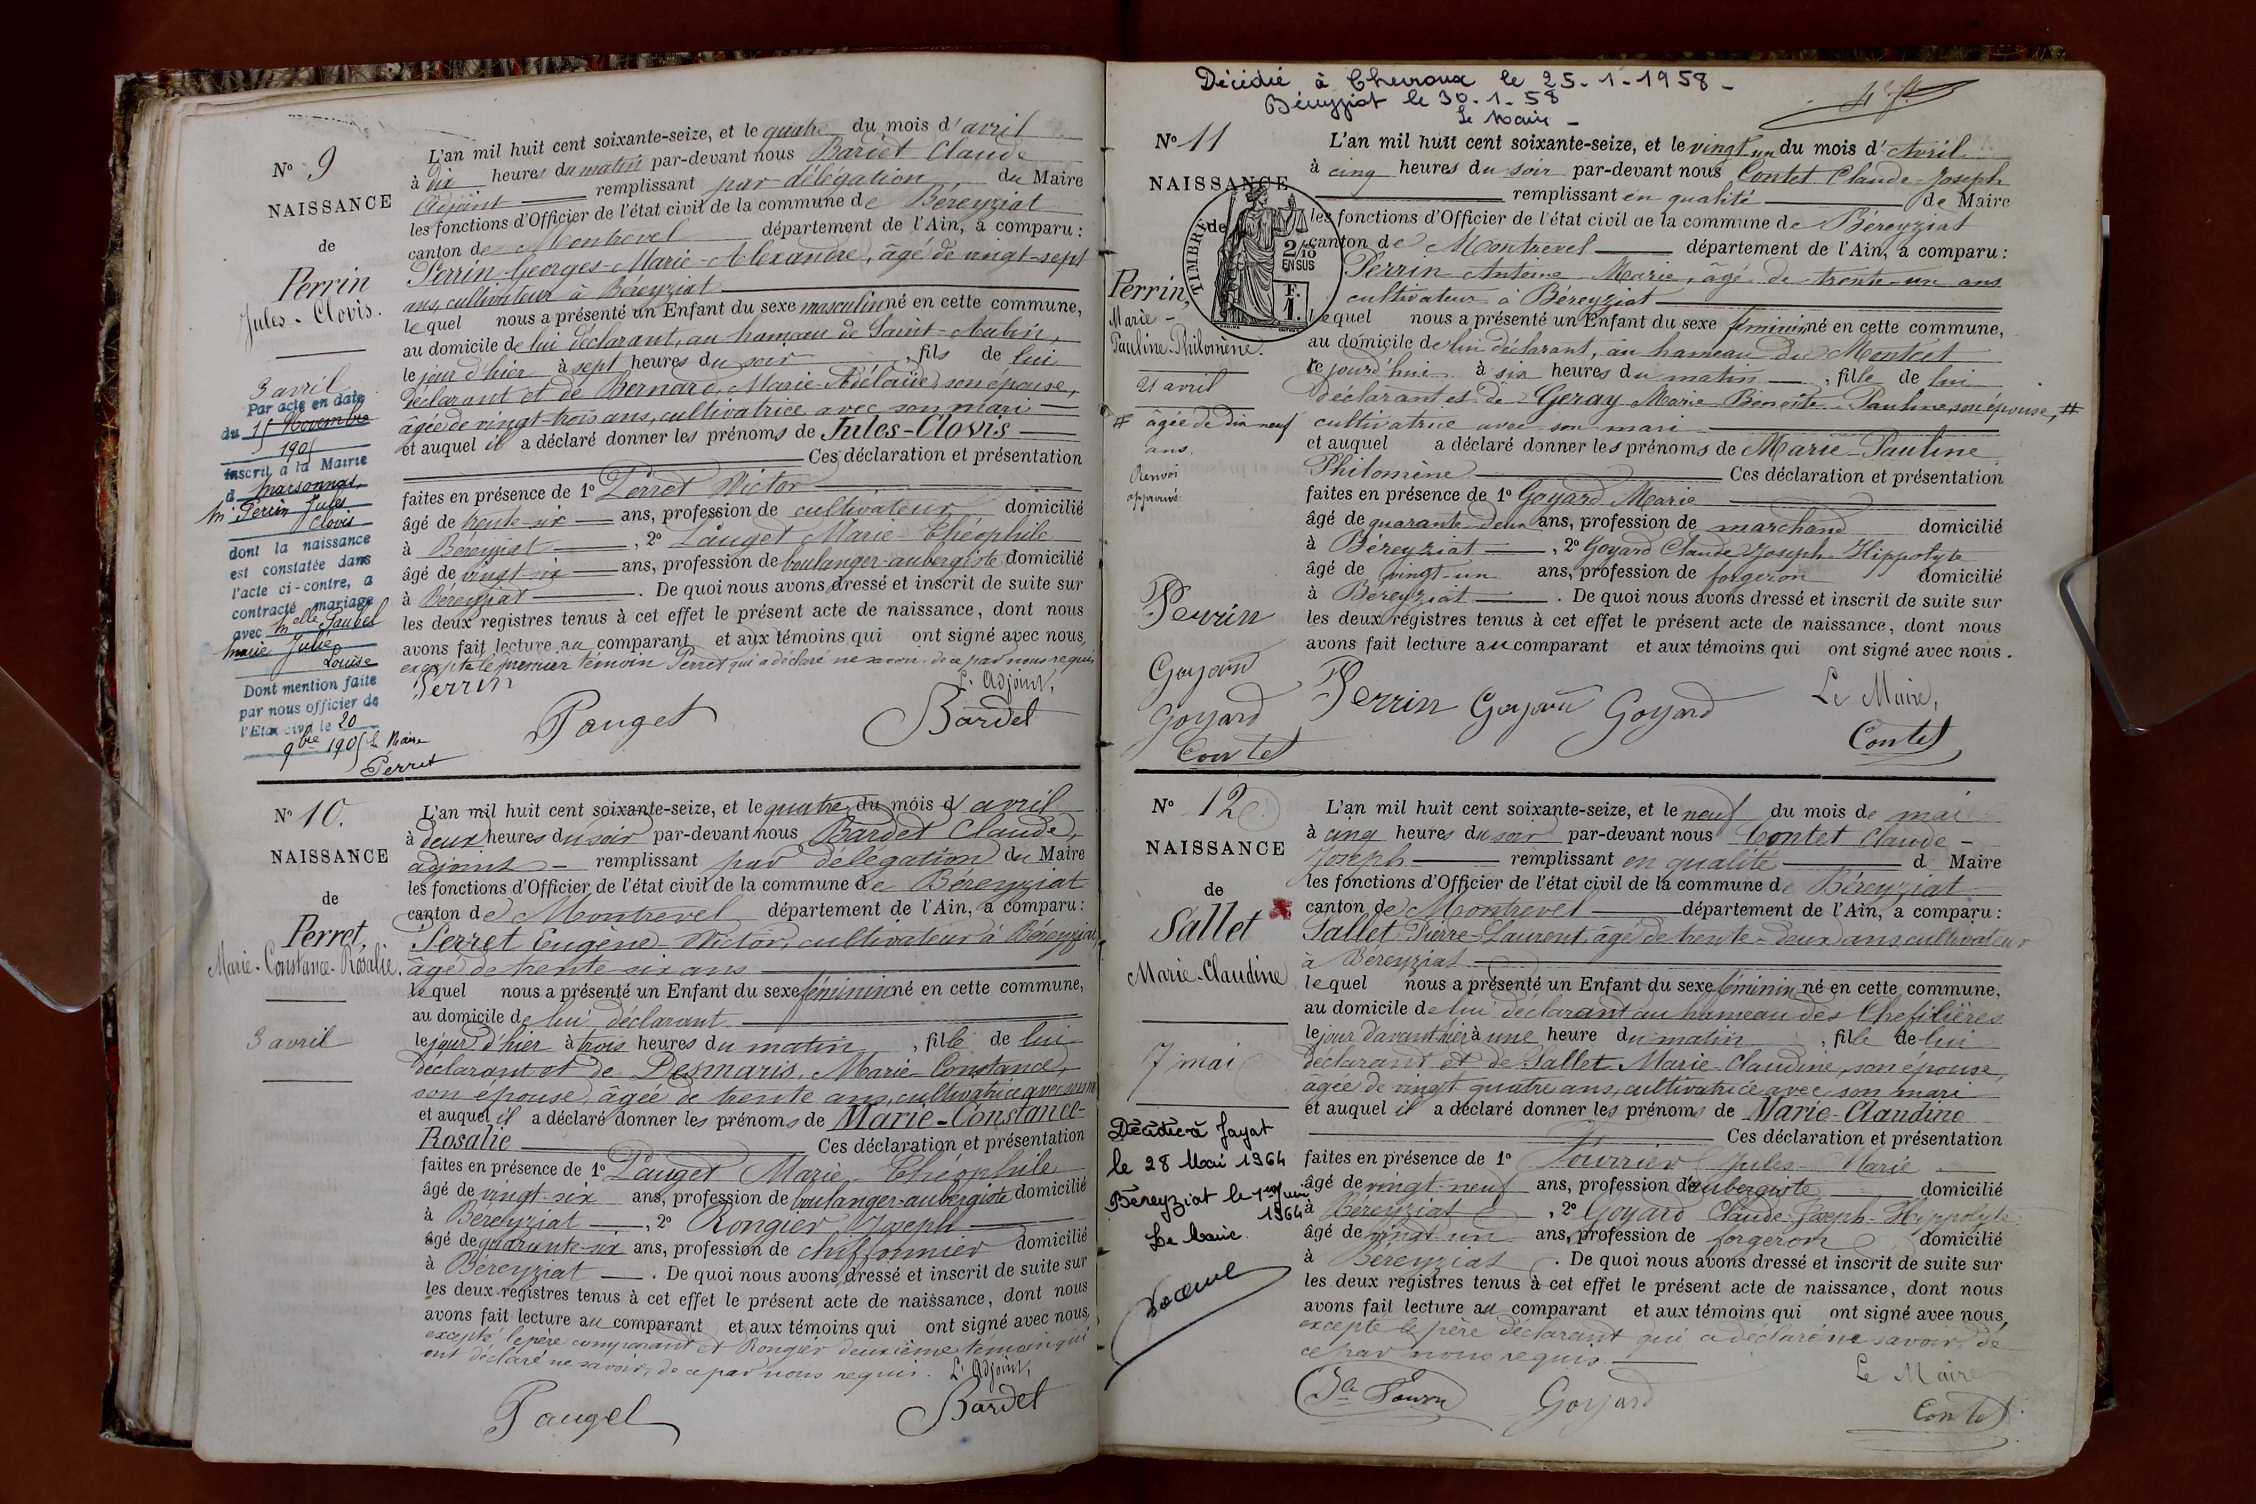 No 9
NAISSANCE
de
Perrin
Jules-Clovis.
3 avril
Par acte en date
du 15 Novembre
1905
inscrit à la Mairie
d Marsonnas
Mr Perrin Jules
Clovis
dont la naissance
est constatée dans
l'acte ci-contre, a
contracté mariage
avec Melle
Marie Julie
Louise
Dont mention faite
par nous officier de
l'Etat civil le 20
9bre 1905 Le Maire
Perret
L'an mil huit cent soixante-seize, et le quatre du mois d'avril
à dix heures du matin par-devant nous Bardet Claude
Adjoint remplissant par délégation du Maire
les fonctions d'Officier de l'état civil de la commune de Béreyziat
canton de Montrevel département de l'Ain, a comparu :
Perrin Georges-Marie-Alexandre, âgé de vingt-sept
ans, cultivateur à Béreyziat
lequel nous a présenté un Enfant du sexe masculin né en cette commune,
au domicile de lui déclarant, au hameau de Saint-Aubin,
le jour d'hier à sept heures du soir, fils de lui
déclarant et de Bernard, Marie-Adélaïde son épouse,
âgée de vingt-trois ans, cultivatrice avec son mari
et auquel il a déclaré donner les prénoms de Jules-Clovis
Ces déclaration et présentation
faites en présence de 1o Perret Victor
âgé de trente-six ans, profession de cultivateur domicilié
à Béreyziat, 2o Pauget Marie-Théophile
âgé de vingt-six ans, profession de boulanger-aubergiste domicilié
à Béreyziat. De quoi nous avons dressé et inscrit de suite sur
les deux registres tenus à cet effet le présent acte de naissance, dont nous
avons fait lecture au comparant et aux témoins qui ont signé avec nous,
excepté le premier témoin Perret qui a déclaré ne savoir de ce par nous requis
Perrin
L'Adjoint,
Pauget
Bardet
No 10.
NAISSANCE
de
Perret,
Marie-Constance-Rosalie.
3 avril
L'an mil huit cent soixante-seize, et le quatre du mois d'avril
à deux heures du soir par-devant nous Bardet Claude,
adjoint remplissant par délégation du Maire
les fonctions d'Officier de l'état civil de la commune de Béreyziat
canton de Montrevel département de l'Ain, a comparu :
Perret Eugène-Victor, cultivateur à Béreyziat,
âgé de trente-six ans
lequel nous a présenté un Enfant du sexe féminin né en cette commune,
au domicile de lui déclarant
le jour d'hier à trois heures du matin, fille de lui
déclarant et de Desmaris, Marie-Constance,
son épouse, âgée de trente ans, cultivatrice avec son mari
et auquel il a déclaré donner les prénoms de Marie-Constance-
Rosalie Ces déclaration et présentation
faites en présence de 1o Pauget Marie-Théophile
âgé de vingt-six ans, profession de boulanger-aubergiste domicilié
à Béreyziat, 2o Rongier Joseph
âgé de quarante-six ans, profession de chiffonnier domicilié
à Béreyziat. De quoi nous avons dressé et inscrit de suite sur
les deux registres tenus à cet effet le présent acte de naissance, dont nous
avons fait lecture au comparant et aux témoins qui ont signé avec nous,
excepté le père comparant et Rongier deuxième témoin qui
ont déclaré ne savoir, de ce par nous requis. L'Adjoint,
Pauget
Bardet
Décédée à Chevroux le 25-1-1958-
Béreyziat le 30-1-58
Le Maire-
No 11
NAISSANCE
de
TIMBRE
2/10
EN SUS
F.
1.
Perrin,
Marie-
Pauline-Philomène.
21 avril
# âgée de dix neuf
ans.
Renvoi
approuvé.
Perrin
Goyard
Goyard
Contet
L'an mil huit cent soixante-seize, et le vingt un du mois d'Avril
à cinq heures du soir par-devant nous Contet Claude-Joseph
remplissant en qualité de Maire
les fonctions d'Officier de l'état civil de la commune de Béreyziat
canton de Montrevel département de l'Ain, a comparu :
Perrin Antoine-Marie, âgé de trente-un ans
cultivateur à Béreyziat
lequel nous a présenté un Enfant du sexe féminin né en cette commune,
au domicile de lui déclarant, au hameau du Montcet
ce jourd'hui à six heures du matin, fille de lui
déclarant et de Geray Marie-Benoîte-Pauline, son épouse, #
cultivatrice avec son mari
et auquel a déclaré donner les prénoms de Marie-Pauline
Philomène Ces déclaration et présentation
faites en présence de 1o Goyard Marie
âgé de quarante-deux ans, profession de marchand domicilié
à Béreyziat, 2o Goyard Claude-Joseph-Hippolyte
âgé de vingt-un ans, profession de forgeron domicilié
à Béreyziat. De quoi nous avons dressé et inscrit de suite sur
les deux registres tenus à cet effet le présent acte de naissance, dont nous
avons fait lecture au comparant et aux témoins qui ont signé avec nous.
Perrin Goyard Goyard
Le Maire,
Contet
No 12
NAISSANCE
de
Sallet
Marie-Claudine
7 mai
Décédée à Jayat
le 28 Mai 1964
Béreyziat le 1er Juin
1964
Le Maire
L'an mil huit cent soixante-seize, et le neuf du mois de mai
à cinq heures du soir par-devant nous Contet Claude-
Joseph remplissant en qualité d Maire
les fonctions d'Officier de l'état civil de la commune de Béreyziat
canton de Montrevel département de l'Ain, a comparu :
Sallet Pierre-Laurent, âgé de trente-deux ans cultivateur
à Béreyziat
lequel nous a présenté un Enfant du sexe féminin né en cette commune,
au domicile de lui déclarant au hameau des Chefilières
le jour d'avant hier à une heure du matin, fille de lui
déclarant et de Sallet Marie-Claudine, son épouse,
âgée de vingt quatre ans, cultivatrice avec son mari
et auquel il a déclaré donner les prénoms de Marie-Claudine
Ces déclaration et présentation
faites en présence de 1o Jules-Marie
âgé de vingt-neuf ans, profession d'aubergiste domicilié
à Béreyziat, 2o Goyard Claude-Joseph-Hippolyte
âgé de vingt-un ans, profession de forgeron domicilié
à Béreyziat. De quoi nous avons dressé et inscrit de suite sur
les deux registres tenus à cet effet le présent acte de naissance, dont nous
avons fait lecture au comparant et aux témoins qui ont signé avec nous,
excepté le père déclarant qui a déclaré ne savoir de
ce par nous requis.
Le Maire
Goyard
Contet